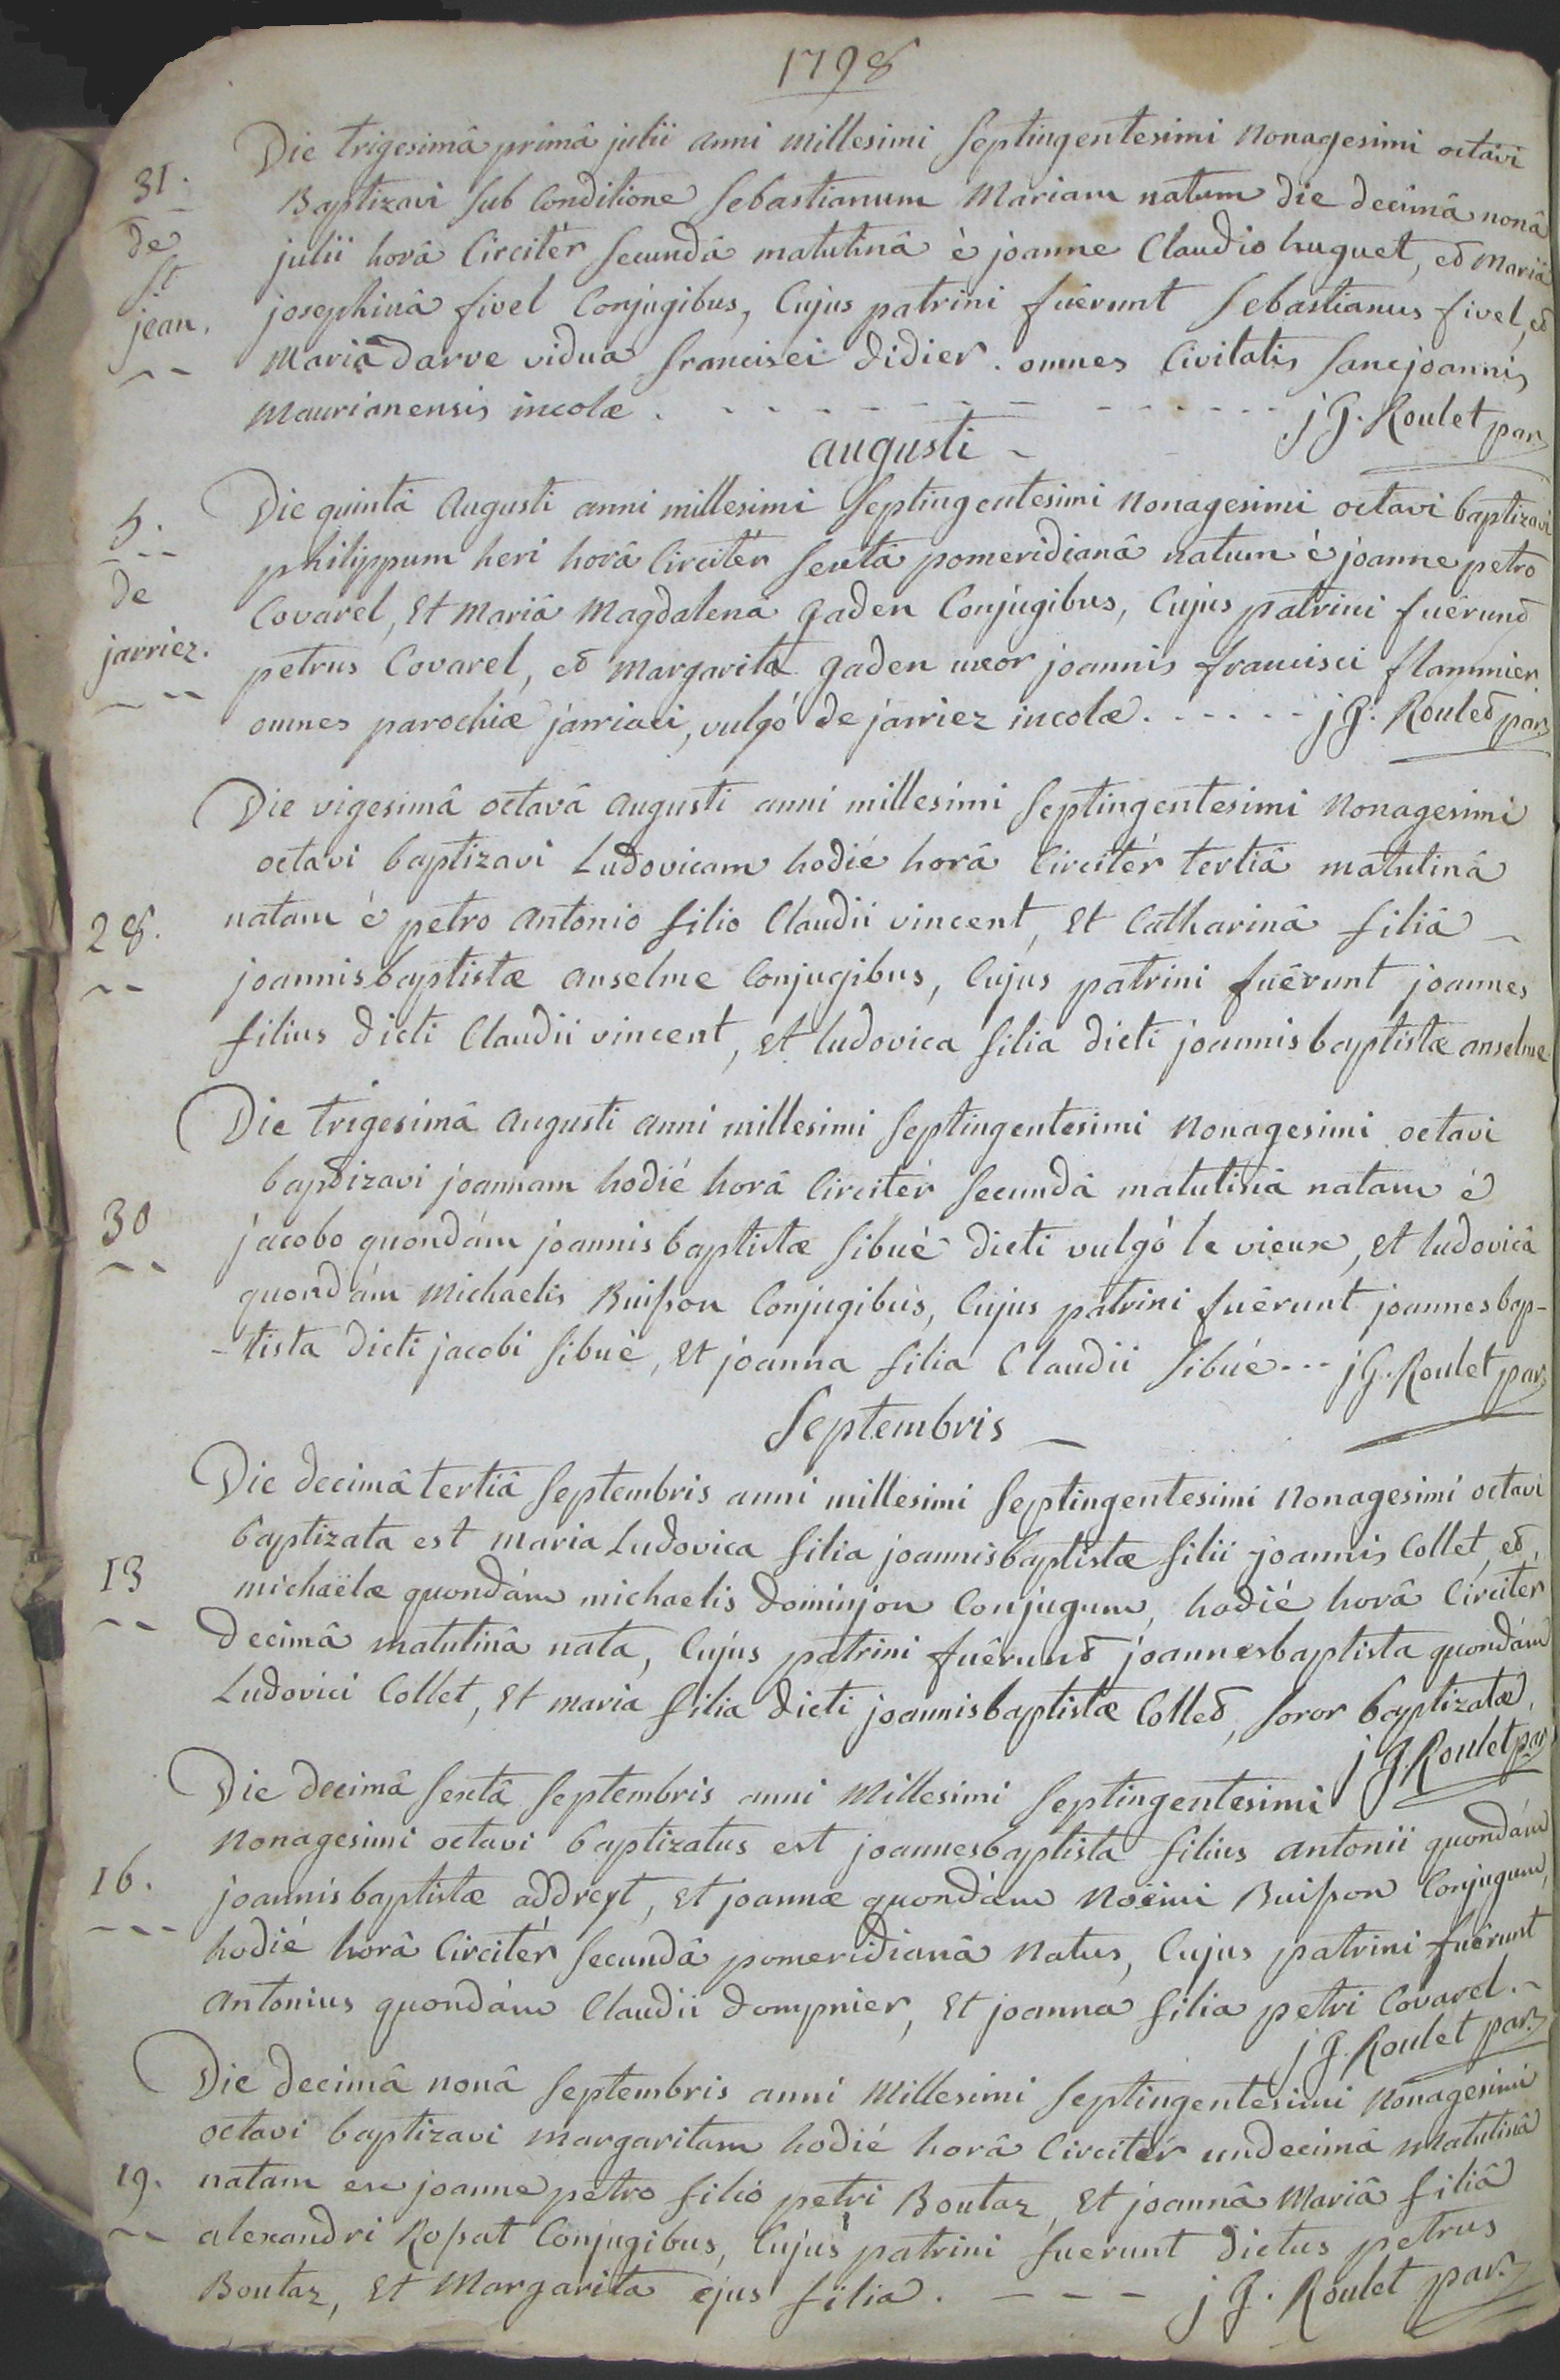 1798
Die trigesimâ primâ julii anni millesimi septingentesimi nonagesimi octavi
31. Baptizavi sub conditione sebastianum Mariam natum die decimâ nonâ
de julii horâ circitèr secundâ matutinâ è joanne claudio huguet, et Mariâ
st josephinâ fivel conjugibus, cujus patrini fuêrunt sebastianus fivel, et
jean. Maria darve vidua francisci didier. omnes civitatis sancjoannis
Maurianensis incolæ. - - - - - - - - - - - - j G. Roulet par.
augusti -
Die quintâ augusti anni millesimi septingentesimi nonagesimi octavi baptizavi
5. philippum heri horâ circitèr sextâ pomeridianâ natum è joanne petro
de Covarel, et Mariâ Magdalenâ gaden conjugibus, cujus patrini fuêrunt
jarriez. petrus Covarel, et Margarita gaden uxor joannis francisci flammier
omnes parochiæ jarriaci, vulgò de jarriez incolæ. - - - - - j G. Roulet par.
Die vigesimâ octavâ augusti anni millesimi septingentesimi nonagesimi
octavi baptizavi Ludovicam hodiè horâ circitèr tertiâ matutinâ
28. natam è petro antonio filio claudii vincent, et catharinâ filiâ -
joannisbaptistæ anselme conjugibus, cujus patrini fuêrunt joannes
filius dicti claudii vincent, et ludovica filia dicti joannisbaptistæ anselme
Die trigesimâ augusti anni millesimi septingentesimi nonagesimi octavi
baptizavi joannam hodiè horâ circitèr secundâ matutinâ natam è
30 jacobo quondàm joannisbaptistæ sibué dicti vulgò le vieux, et ludovicâ
quondàm Michaelis Buisson conjugibus, cujus patrini fuêrunt joannesbap-
-tista dicti jacobi sibué, et joanna filia claudii sibué - - - j G. Roulet par.
Septembris -
Die decimâ tertiâ septembris anni millesimi septingentesimi nonagesimi octavi
baptizata est maria Ludovica filia joannisbaptistæ filii joannis Collet, et
13 michaëlæ quondàm michaelis dominjon conjugum, hodiè horâ circitèr
decimâ matutinâ nata, cujus patrini fuêrunt joannesbaptista quondàm
Ludovici Collet, et maria filia dicti joannisbaptistæ Collet, soror baptizatæ.
j G. Roulet par.
Die decimâ sextâ septembris anni Millesimi septingentesimi
nonagesimi octavi baptizatus est joannesbaptista filius antonii quondàm
16. joannisbaptistæ addreyt, et joannæ quondàm noëmi Buisson conjugum,
hodiè horâ circitèr secundâ pomeridianâ natus, cujus patrini fuêrunt
antonius quondàm claudii dompnier, et joanna filia petri Covarel. -
j G. Roulet par.
Die decimâ nonâ septembris anni Millesimi septingentesimi nonagesimi
octavi baptizavi margaritam hodiè horâ circitèr undecimâ matutinâ
19. natam ex joanne petro filio petri Boutaz, et joannâ Mariâ filiâ
alexandri Rossat conjugibus, cujus patrini fuerunt dictus petrus
Boutaz, et Margarita ejus filia. - - - j G. Roulet par.